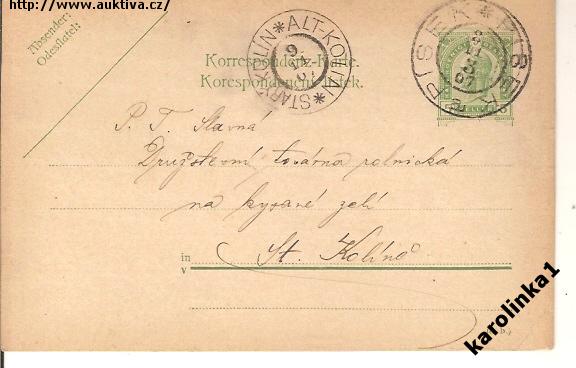 http://www.auktiva.cz/
Absender:
Odesílatel:
Korrespondenz-Karte.
Korespondenční lístek.
ALT-KOLIN * STARÝ KOLÍN *
PISEK * PÍSEK
P. T. Slavná
Družstevní továrna rolnická
na kysané zelí
in
v
St. Kolíně
karolinka1